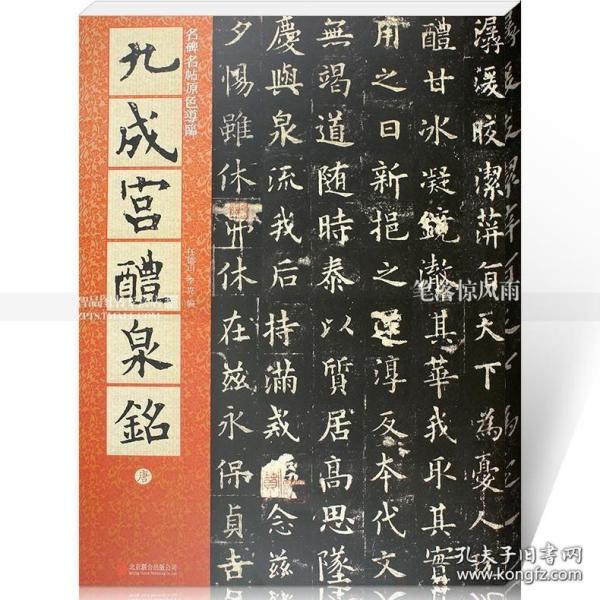 名碑名帖原色導臨
九成宮醴泉銘
唐
北京联合出版公司
潺湲皎潔萍旨天下為憂人
醴甘冰凝鏡澈其華我取其實
用之日新挹之還淳反本代文
無竭道随時泰以質居高思墜
慶與泉流我后持滿戒念茲
夕惕雖休弗休在茲永保貞吉
笔落惊风雨
ZPTS.TMALL.COM
孔夫子旧书网
www.kongfz.com